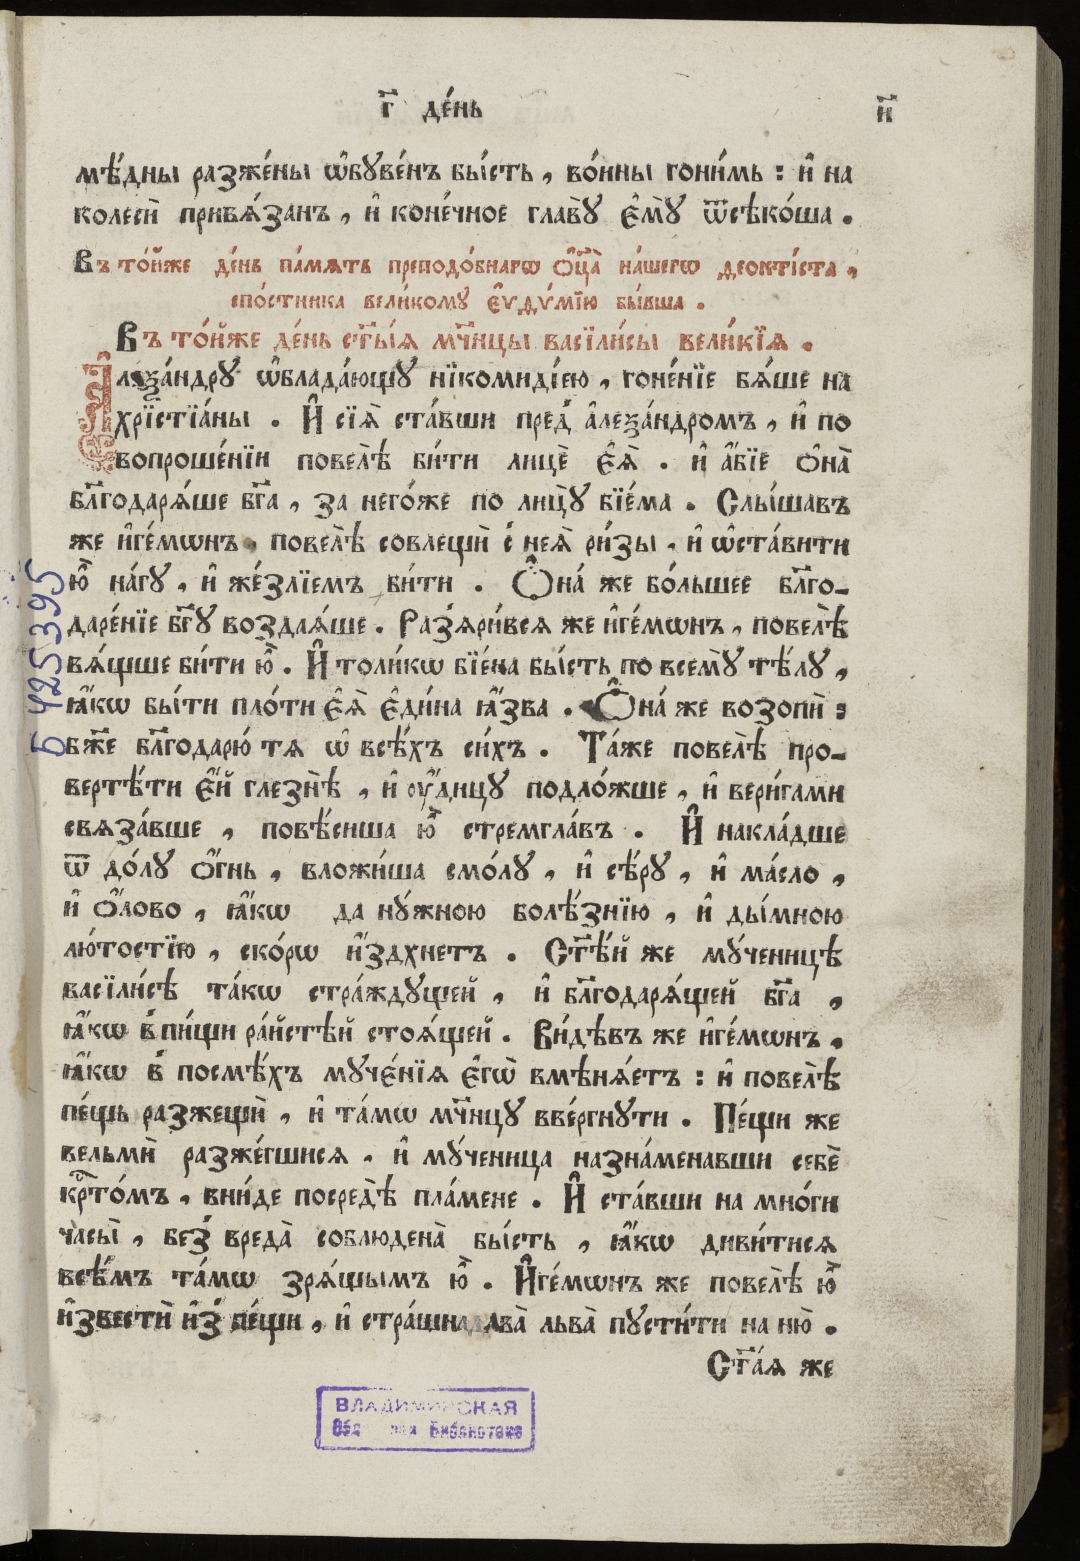 г҃ де́нь н҃
мѣ́дны разже́ны ѡ҆бꙋве́нъ бы́сть , во́ины гони́мь : и҆ на
колесѝ привѧ́занъ , и҆ коне́чное главꙋ̀ є҆мꙋ̀ ѿсѣко́ша .
Въ то́йже де́нь па́мѧть преподо́бнагѡ ѻ҆ц҃а̀ на́шегѡ ѳеокті́ста ,
спо́стника вели́комꙋ є҆ѵѳѵ́мїю бы́вша .
Въ то́йже де́нь ст҃ы́ѧ мч҃ницы васїли́сы вели́кїѧ .
А҆леѯа́ндрꙋ ѡ҆блада́ющꙋ нїкомиді́ею , гоне́нїе бѧ́ше на
хрїстїа́ны . И҆ сїѧ̀ ста́вши пред̾ а҆леѯа́ндромъ , и҆ по
вопроше́нїи повелѣ̀ би́ти лицѐ є҆ѧ̀ . и҆ а҆́бїе ѻ҆на̀
бл҃годарѧ́ше бг҃а , за него́же по лицꙋ̀ бїе́ма . Слы́шавъ
же и҆ге́мѡнъ , повелѣ̀ совлещѝ с̾ неѧ̀ ри́зы , и҆ ѡ҆ста́вити
ю҆̀ на́гꙋ , и҆ же́злїемъ би́ти . Ѻ҆на́ же бо́льшее бл҃го-
даре́нїе бг҃ꙋ воздаѧ́ше . Раз̾ѧри́всѧ же и҆ге́мѡнъ , повелѣ̀
вѧ́щше би́ти ю҆̀ . И҆ толи́кѡ бїе́на бы́сть по всемꙋ̀ тѣ́лꙋ ,
ꙗ҆́кѡ бы́ти пло́ти є҆ѧ̀ є҆ди́на ꙗ҆́зва . Ѻ҆на́ же возопѝ :
бж҃е бл҃годарю́ тѧ ѡ҆ всѣ́хъ си́хъ . Та́же повелѣ̀ про-
вертѣ́ти є҆́й глезнѣ̀ , и҆ ᲂу҆́дицꙋ подло́жше , и҆ вери́гами
свѧза́вше , повѣ́сиша ю҆̀ стремгла́въ . И҆ накла́дше
ѿ до́лꙋ ѻ҆́гнь , вложи́ша смо́лꙋ , и҆ сѣ́рꙋ , и҆ ма́сло ,
и҆ ѻ҆́лово , ꙗ҆́кѡ да нꙋ́жною болѣ́знїю , и҆ ды́мною
лю́тостїю , ско́рѡ и҆́здхнетъ . Ст҃ѣ́й же мꙋ́ченицѣ
васїли́сѣ та́кѡ стра́ждꙋщей , и҆ бл҃годарѧ́щей бг҃а ,
ꙗ҆́кѡ в̾ пи́щи ра́йстѣй стоѧ́щей . Ви́дѣвъ же и҆ге́мѡнъ ,
ꙗ҆́кѡ в̾ посмѣ́хъ мꙋче́нїѧ є҆гѡ̀ вмѣнѧ́етъ : и҆ повелѣ̀
пе́щь разжещѝ , и҆ та́мѡ мч҃ницꙋ вве́ргнꙋти . Пе́щи же
вельмѝ разже́гшисѧ , и҆ мꙋ́ченица назна́менавши себѐ
крⷭ҇то́мъ , вни́де посредѣ̀ пла́мене . И҆ ста́вши на мно́ги
часы̀ , без̾ вреда̀ соблюдена̀ бы́сть , ꙗ҆́кѡ диви́тисѧ
всѣ́мъ та́мѡ зрѧ́щымъ ю҆̀ . И҆ге́мѡнъ же повелѣ̀ ю҆̀
и҆звестѝ и҆з̾ пе́щи , и҆ стра́шна два̀ льва̀ пꙋсти́ти на ню̀ .
Ст҃а́ѧ же
Б 425395
ВЛАДИМИРСКАЯ
Библиотека